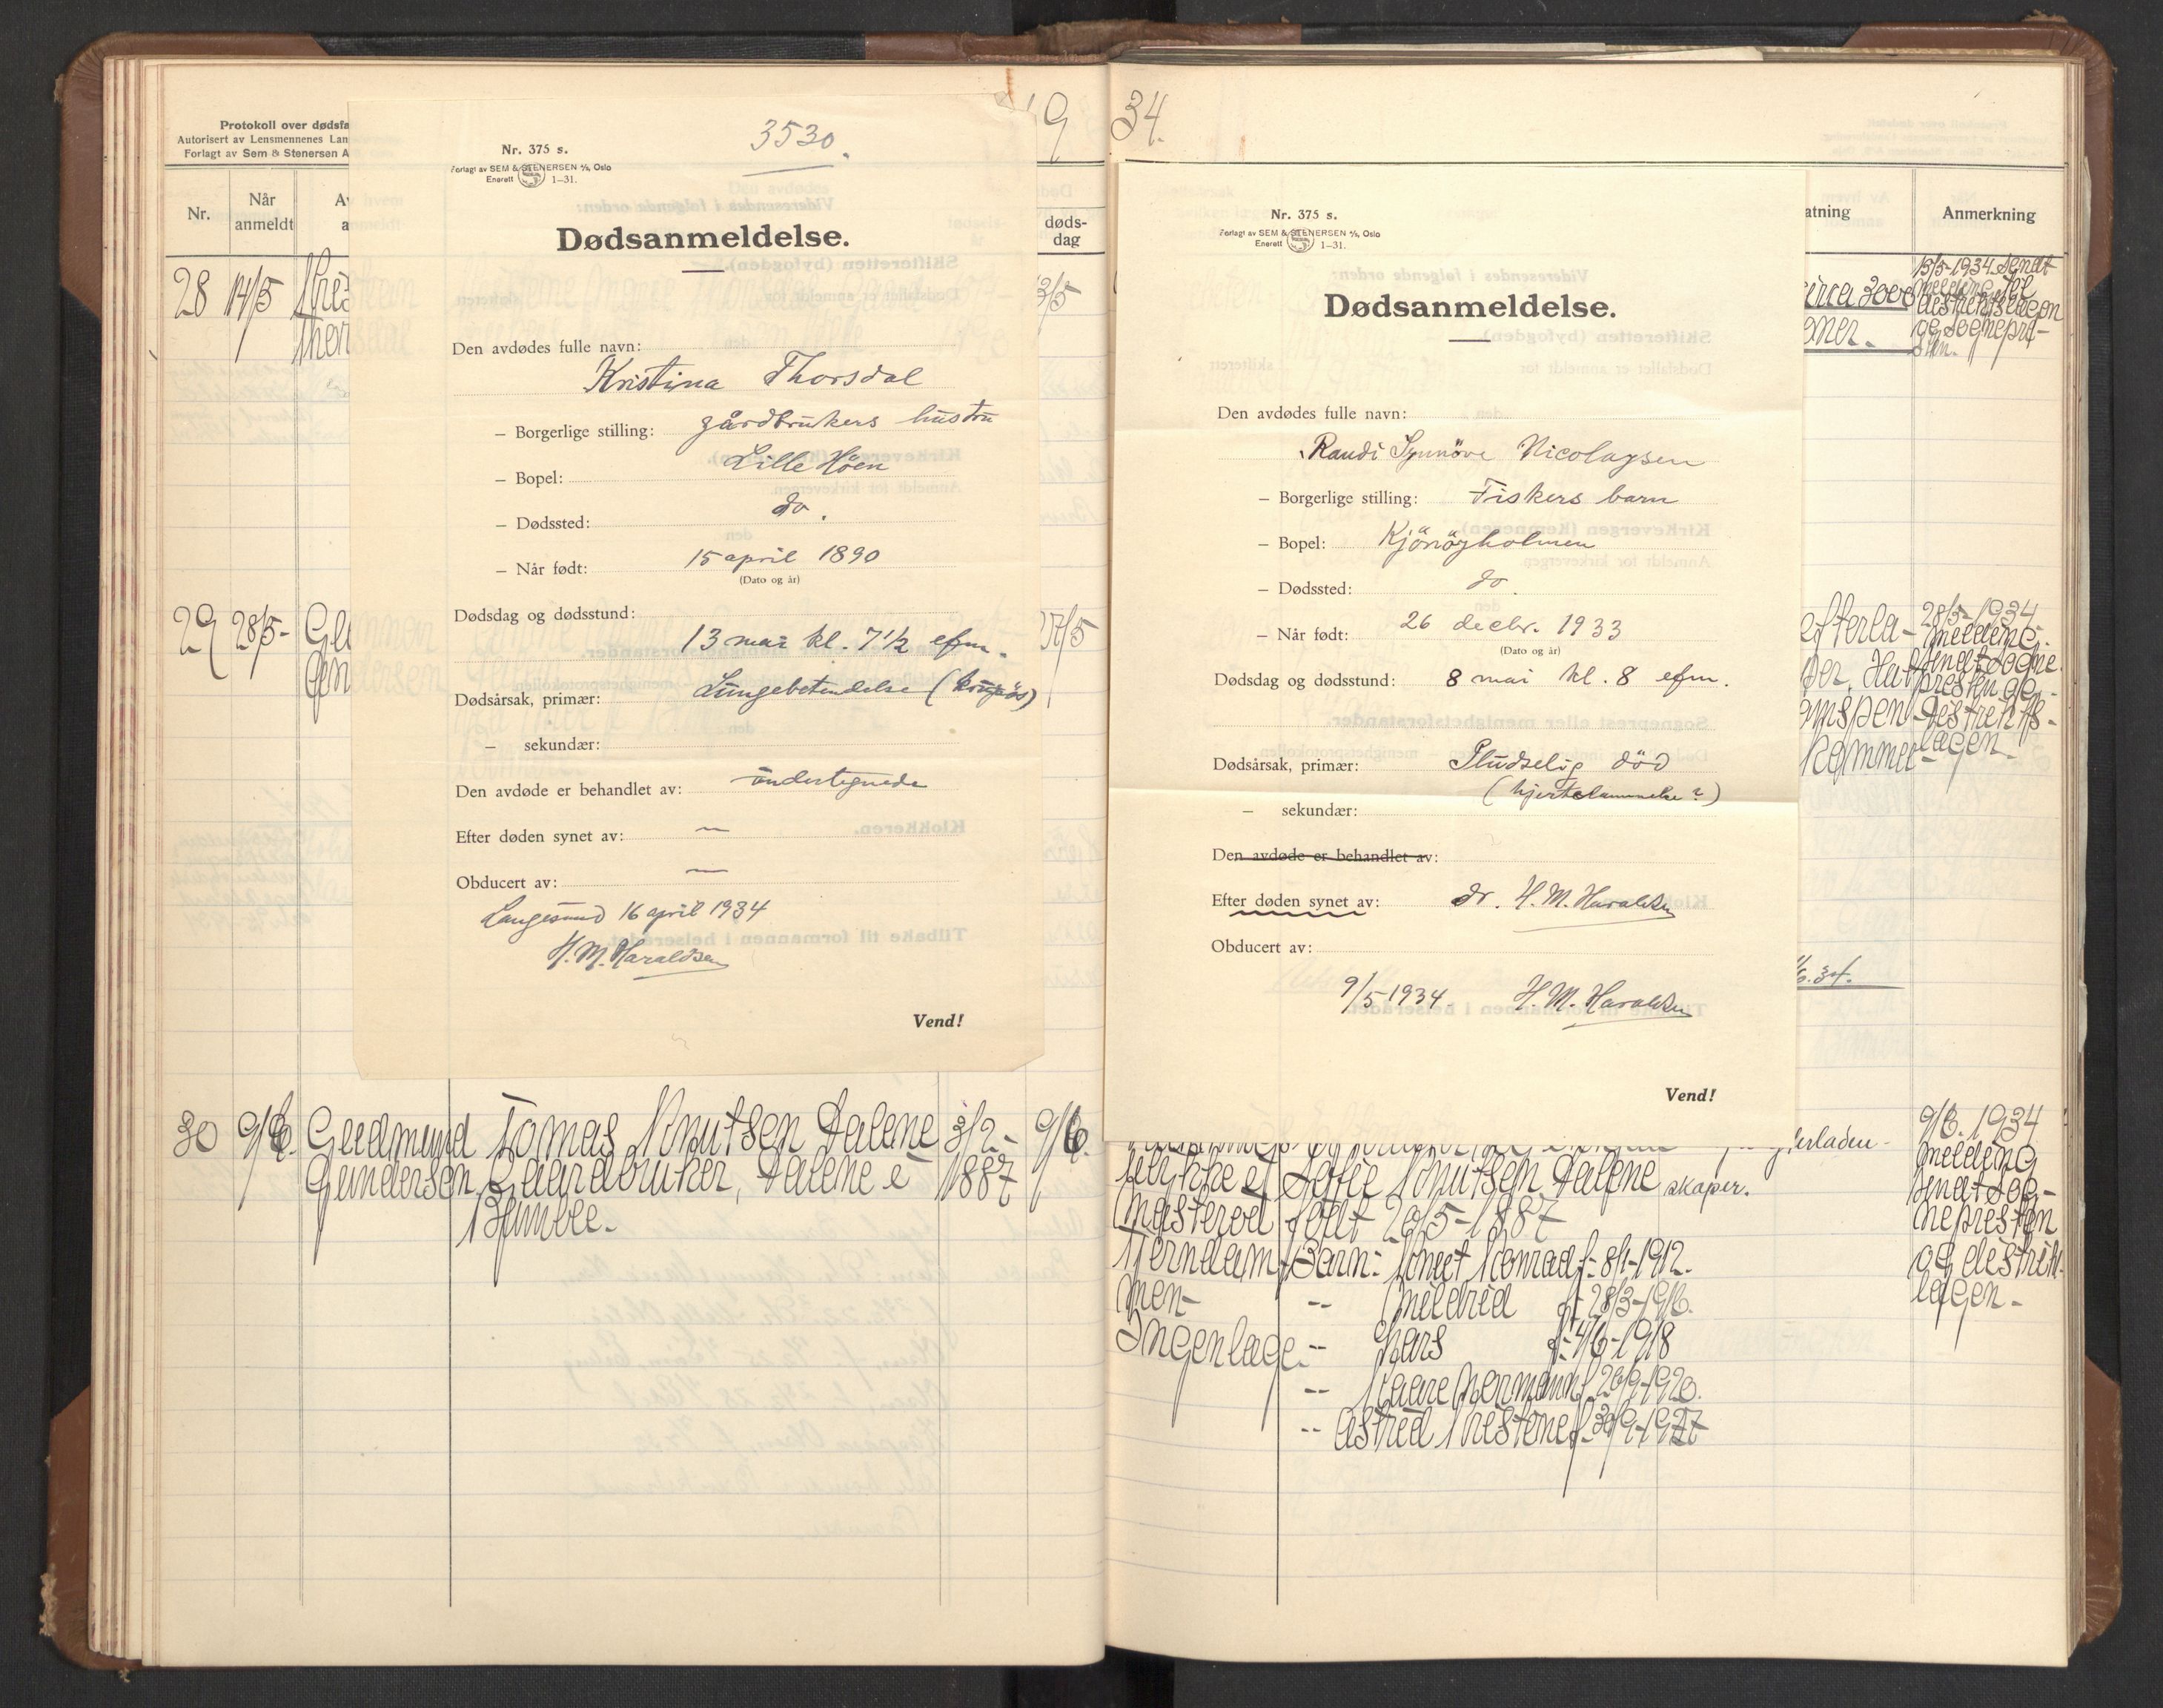 Protokoll over dødsfa
Autorisert av Lensmennenes Lan
Forlagt av Sem & Stenersen A
19 34.
Nr.
Når anmeldt
døds-
dag
atning
Anmerkning
28 14/5
Thor
13/5
irca 3000
oner.
15/5-1934 Sendt
melding til
distriktslægen
og sognepre-
sten.
29 28/5-
Gun
27/5
efterla-
per. Hat
28/5-1934
melding
sendt sogne
prest og
distrikts-
lægen
Nr. 375 s.
3530.
Forlagt av SEM & STENERSEN A/S, Oslo
Enerett 1–31.
Dødsanmeldelse.
Den avdødes fulle navn:
Kristina Thorsdal
– Borgerlige stilling: gårdbrukers hustru
– Bopel: Lille Høen
– Dødssted: do.
– Når født: 15 april 1890
(Dato og år)
Dødsdag og dødsstund:
13 mai kl. 7 1/2 efm.
Dødsårsak, primær: Lungebetendelse (krupøs)
– sekundær:
Den avdøde er behandlet av: undertegnede
Efter døden synet av: —
Obducert av: —
Langesund 16 april 1934
H. M. Haraldsen
Vend!
Nr. 375 s.
Forlagt av SEM & STENERSEN A/S, Oslo
Enerett 1–31.
Dødsanmeldelse.
Den avdødes fulle navn:
Randi Synnöve Nicolaysen
– Borgerlige stilling: Fiskers barn
– Bopel: Kjönöyholmen
– Dødssted: do.
– Når født: 26 decbr. 1933
(Dato og år)
Dødsdag og dødsstund: 8 mai kl. 8 efm.
Dødsårsak, primær: Pludselig död
(hjertelammelse?)
– sekundær:
Den avdøde er behandlet av:
Efter døden synet av: dr. H. M. Haraldsen
Obducert av:
9/5-1934. H. M. Haraldsen
Vend!
6.34.
30 9/6. Gudmund Tomas Knutsen Dalene 3/2- 9/6.
Gundersen Gaardbruker, Dalene i 1887
Bamble.
erladen-
skaper.
Knutsen Dalene
født 20/5-1887
Barn: Knut Konrad f. 8/1-1912.
-- Mildrid f. 28/3-1916.
-- Lars f. 4/6-1918
-- Kaare Hermann f. 20/9-1920.
-- Astrid Kristine f. 30/9-1927
men-
Ingen læge.
9/6. 1934
melding
sendt sog-
nepresten
og distrikts-
lægen-